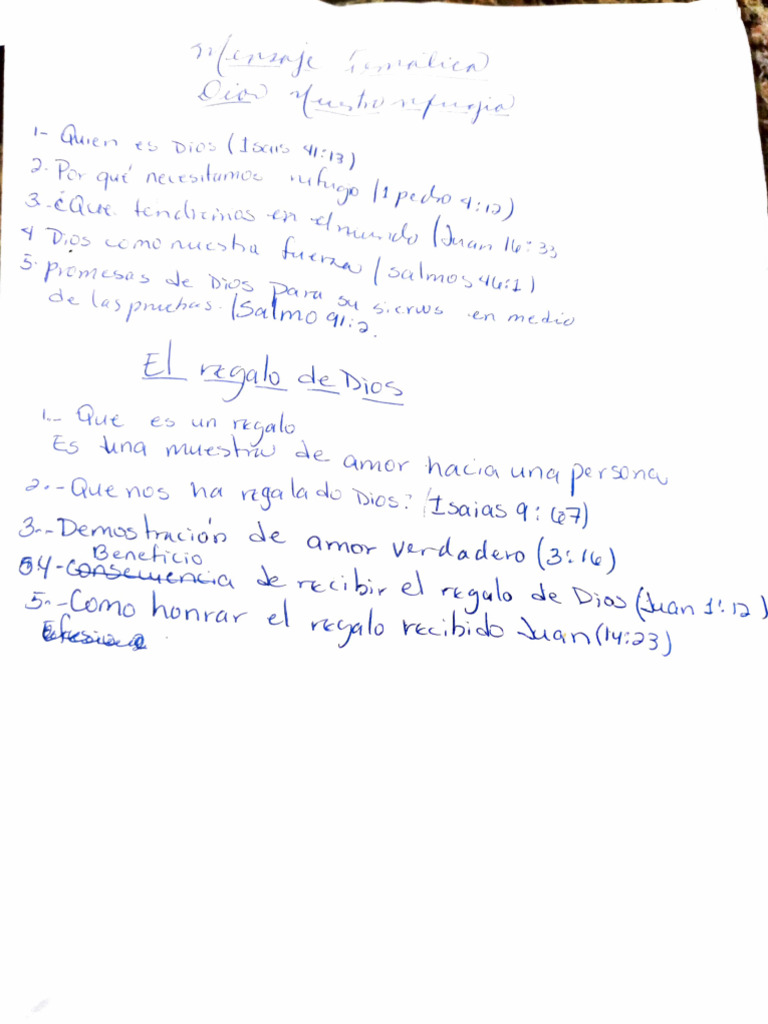 Mensaje Temática
Dios Nuestro refugio
1- Quien es Dios (Isais 41:13)
2. Por qué necesitamos refugo (1 pedro 4:12)
3. ¿Que tendricinos en el mundo (Juan 16:33
4 Dios como nuestra fuerza (Salmos 46:1)
5. promesas de Dios para su siervos en medio
de las pruebas. (Salmo 91:2.
El regalo de Dios
1.- Que es un regalo
Es una muestra de amor hacia una persona
2.-Que nos ha regalado Dios? (Isaias 9:67)
3.-Demostración de amor verdadero (3:16)
Beneficio
4-Consecuencia de recibir el regalo de Dios (Juan 1:12)
5.-Como honrar el regalo recibido Juan (14:23)